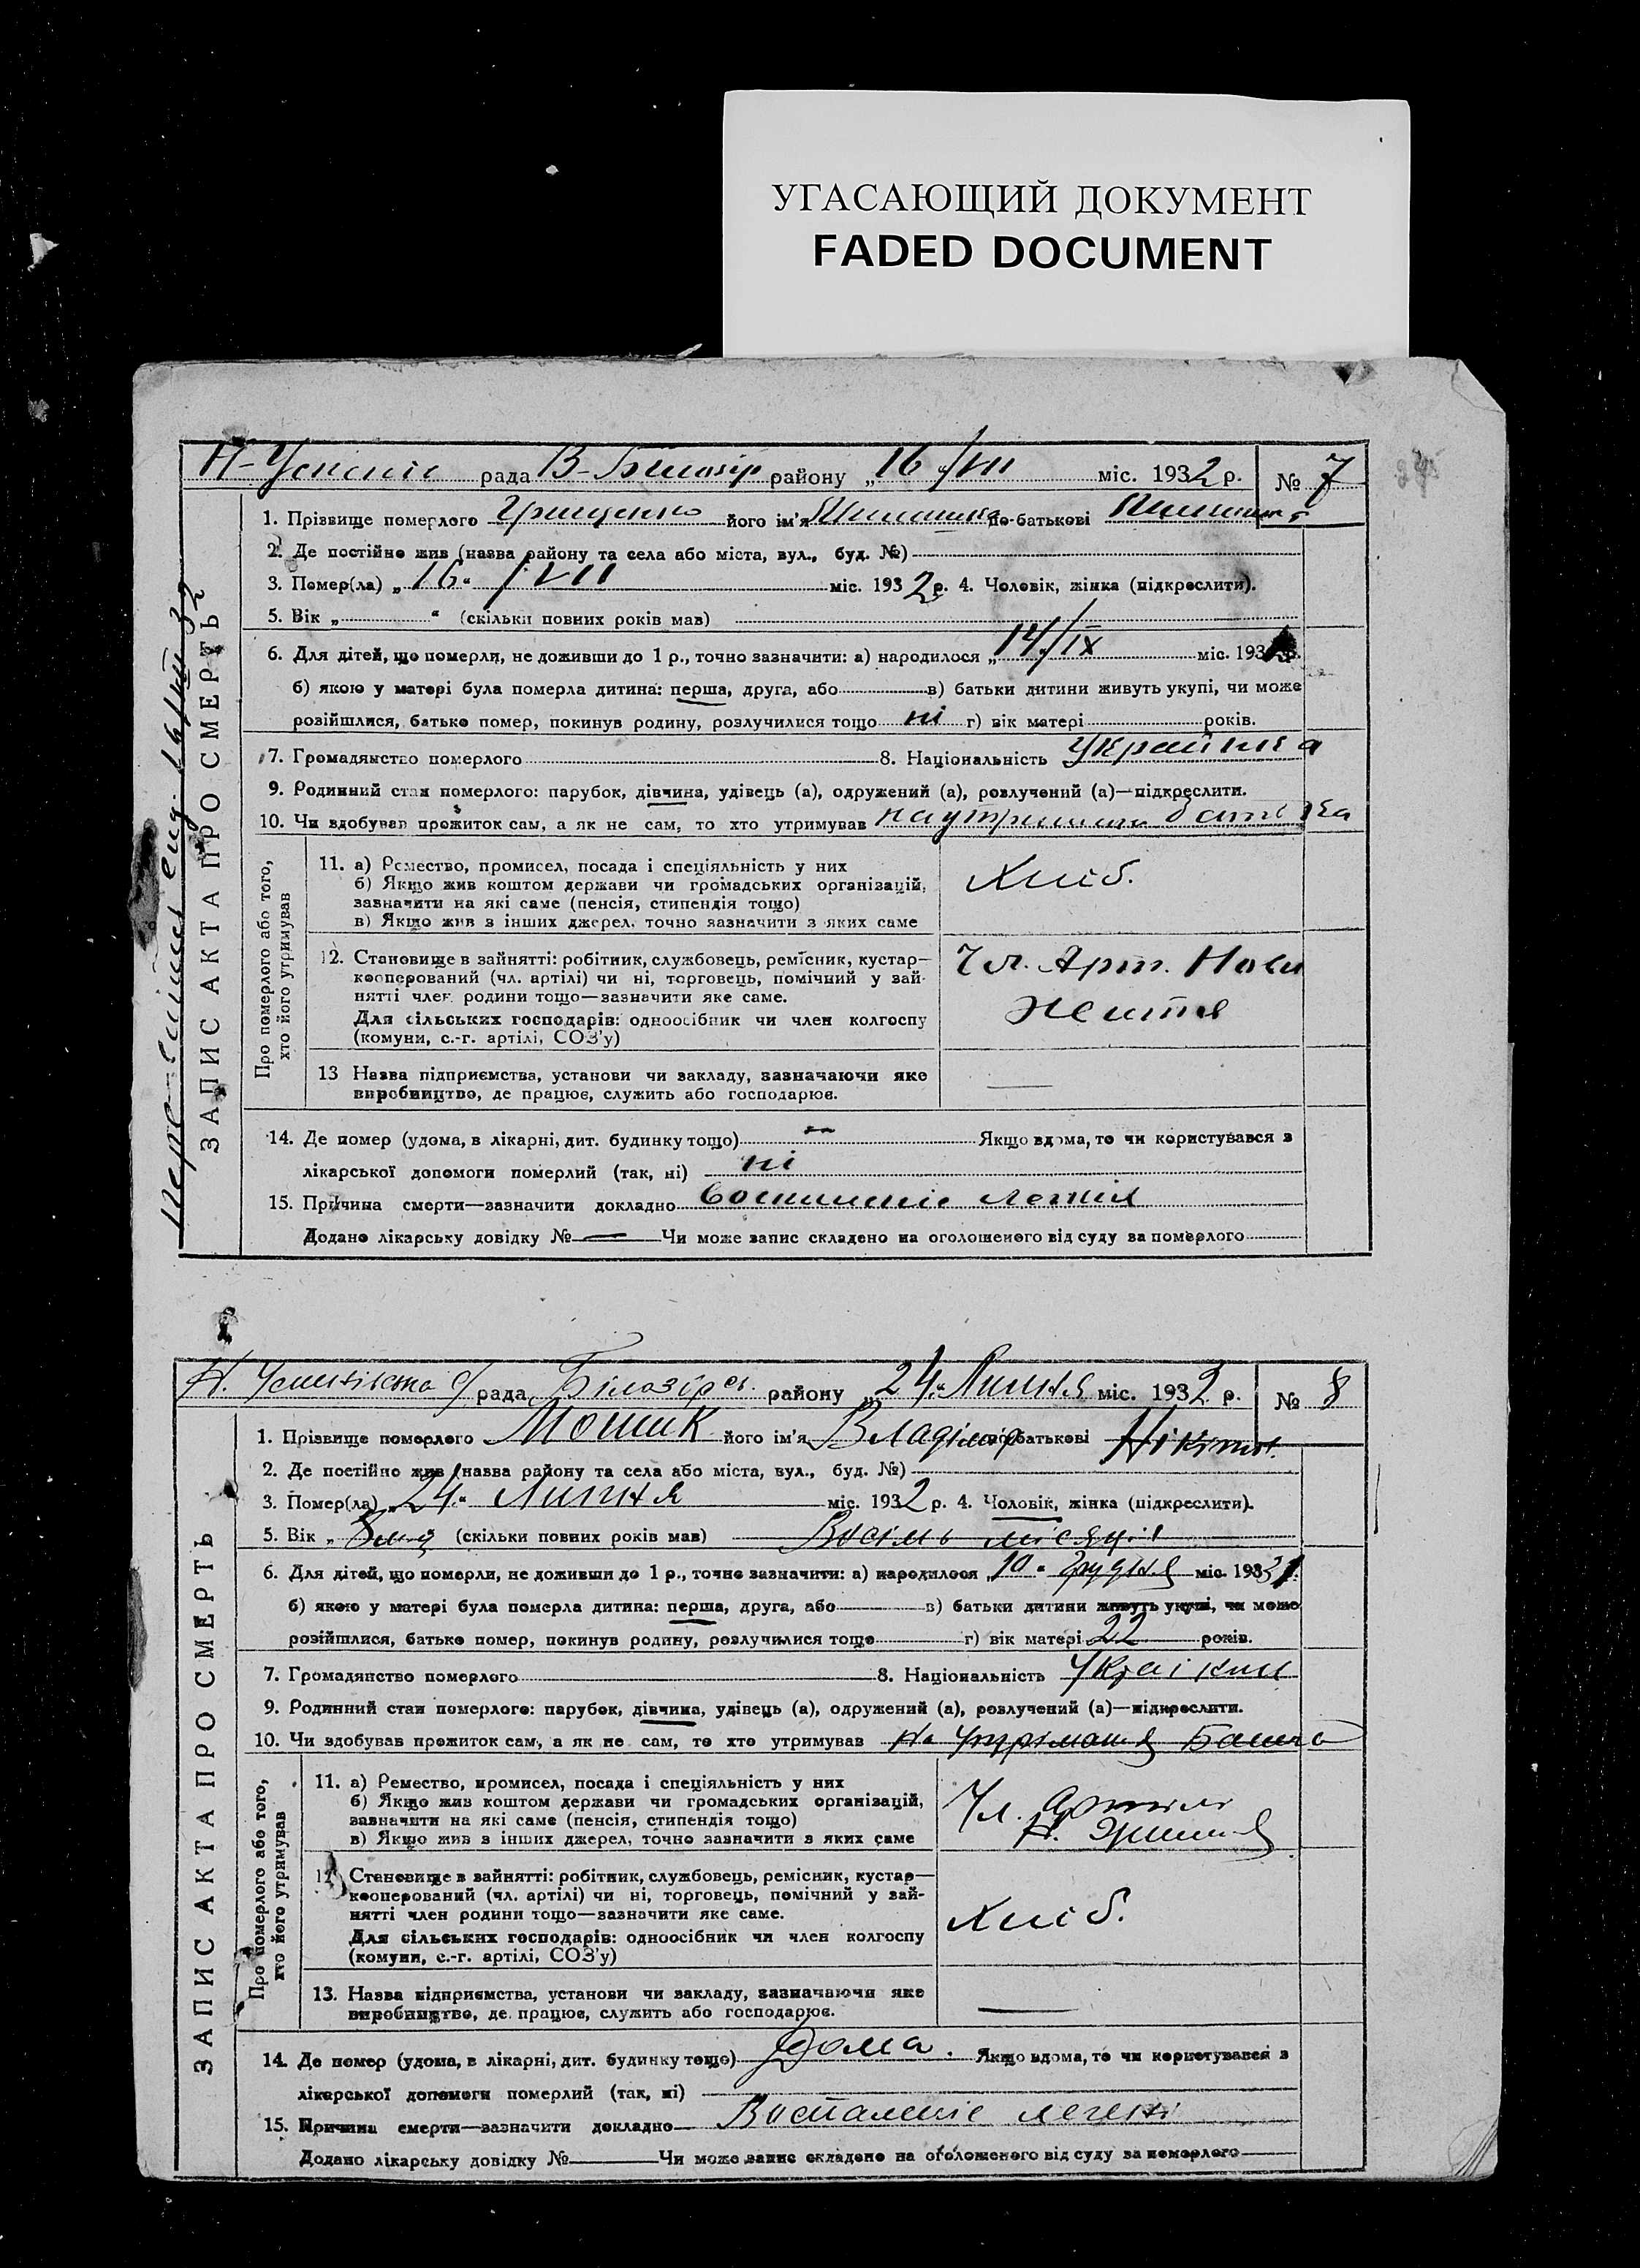 УГАСАЮЩИЙ ДОКУМЕНТ
FADED DOCUMENT
рада В- району „16 /VII міс. 1932 р. № 7
1. Прізвище померлого Грищенко його ім'я по-батькові
2. Де постійно жив (назва району та села або міста, вул., буд. №)
3. Помер(ла) „16“ /VII міс. 1932 р. 4. Чоловік, жінка (підкреслити).
5. Вік „ “ (скільки повних років мав)
6. Для дітей, що померли, не доживши до 1 р., точно зазначити: а) народилося „14/IX міс. 193 р.
б) якою у матері була померла дитина: перша, друга, або в) батьки дитини живуть укупі, чи може
розійшлися, батько помер, покинув родину, розлучилися тощо ні г) вік матері років.
7. Громадянство померлого 8. Національність Украинка
9. Родинний стан померлого: парубок, дівчина, удівець (а), одружений (а), розлучений (а)—підкреслити.
10. Чи здобував прожиток сам, а як не сам, то хто утримував на утриманні батька
11. а) Ремество, промисел, посада і спеціяльність у них
б) Якщо жив коштом держави чи громадських організацій,
зазначити на які саме (пенсія, стипендія тощо)
в) Якщо жив з інших джерел, точно зазначити з яких саме
Хліб.
12. Становище в зайнятті: робітник, службовець, ремісник, кустар—
кооперований (чл. артілі) чи ні, торговець, помічний у зай-
нятті член родини тощо—зазначити яке саме.
Для сільських господарів: одноосібник чи член колгоспу
(комуни, с.-г. артілі, СОЗ'у)
Чл. Арт. Нове
життя
13 Назва підприємства, установи чи закладу, зазначаючи яке
виробництво, де працює, служить або господарює.
Про померлого або того,
хто його утримував
14. Де помер (удома, в лікарні, дит. будинку тощо) Якщо вдома, то чи користувався з
лікарської допомоги померлий (так, ні) ні
15. Причина смерти—зазначити докладно воспаленіє легкіх
Додано лікарську довідку №— Чи може запис складено на оголошеного від суду за померлого
ЗАПИС АКТА ПРО СМЕРТЬ
Н. рада Білозірсь. району „24“ Липня міс. 1932 р. № 8
1. Прізвище померлого Мошик його ім'я Владімір по-батькові Нікіт.
2. Де постійно жив (назва району та села або міста, вул., буд. №)
3. Помер(ла) „24“ Липня міс. 1932 р. 4. Чоловік, жінка (підкреслити).
5. Вік „8 міс (скільки повних років мав) Вісім місяців
6. Для дітей, що померли, не доживши до 1 р., точно зазначити: а) народилося „10“ Грудня міс. 1931.
б) якою у матері була померла дитина: перша, друга, або в) батьки дитини живуть укупі, чи може
розійшлися, батько помер, покинув родину, розлучилися тощо г) вік матері 22 років.
7. Громадянство померлого 8. Національність
9. Родинний стан померлого: парубок, дівчина, удівець (а), одружений (а), розлучений (а)—підкреслити.
10. Чи здобував прожиток сам, а як не сам, то хто утримував На утриманні
11. а) Ремество, промисел, посада і спеціяльність у них
б) Якщо жив коштом держави чи громадських організацій,
зазначити на які саме (пенсія, стипендія тощо)
в) Якщо жив з інших джерел, точно зазначити з яких саме
Чл. Артілі
12. Становище в зайнятті: робітник, службовець, ремісник, кустар—
кооперований (чл. артілі) чи ні, торговець, помічний у зай-
нятті член родини тощо—зазначити яке саме.
Для сільських господарів: одноосібник чи член колгоспу
(комуни, с.-г. артілі, СОЗ'у)
Хліб.
13. Назва підприємства, установи чи закладу, зазначаючи яке
виробництво, де працює, служить або господарює.
Про померлого або того,
хто його утримував
14. Де помер (удома, в лікарні, дит. будинку тощо) Дома. Якщо вдома, то чи користувався з
лікарської допомоги померлий (так, ні)
15. Причина смерти—зазначити докладно Воспаленіє легень
Додано лікарську довідку № Чи може запис складено на оголошеного від суду за померлого
ЗАПИС АКТА ПРО СМЕРТЬ